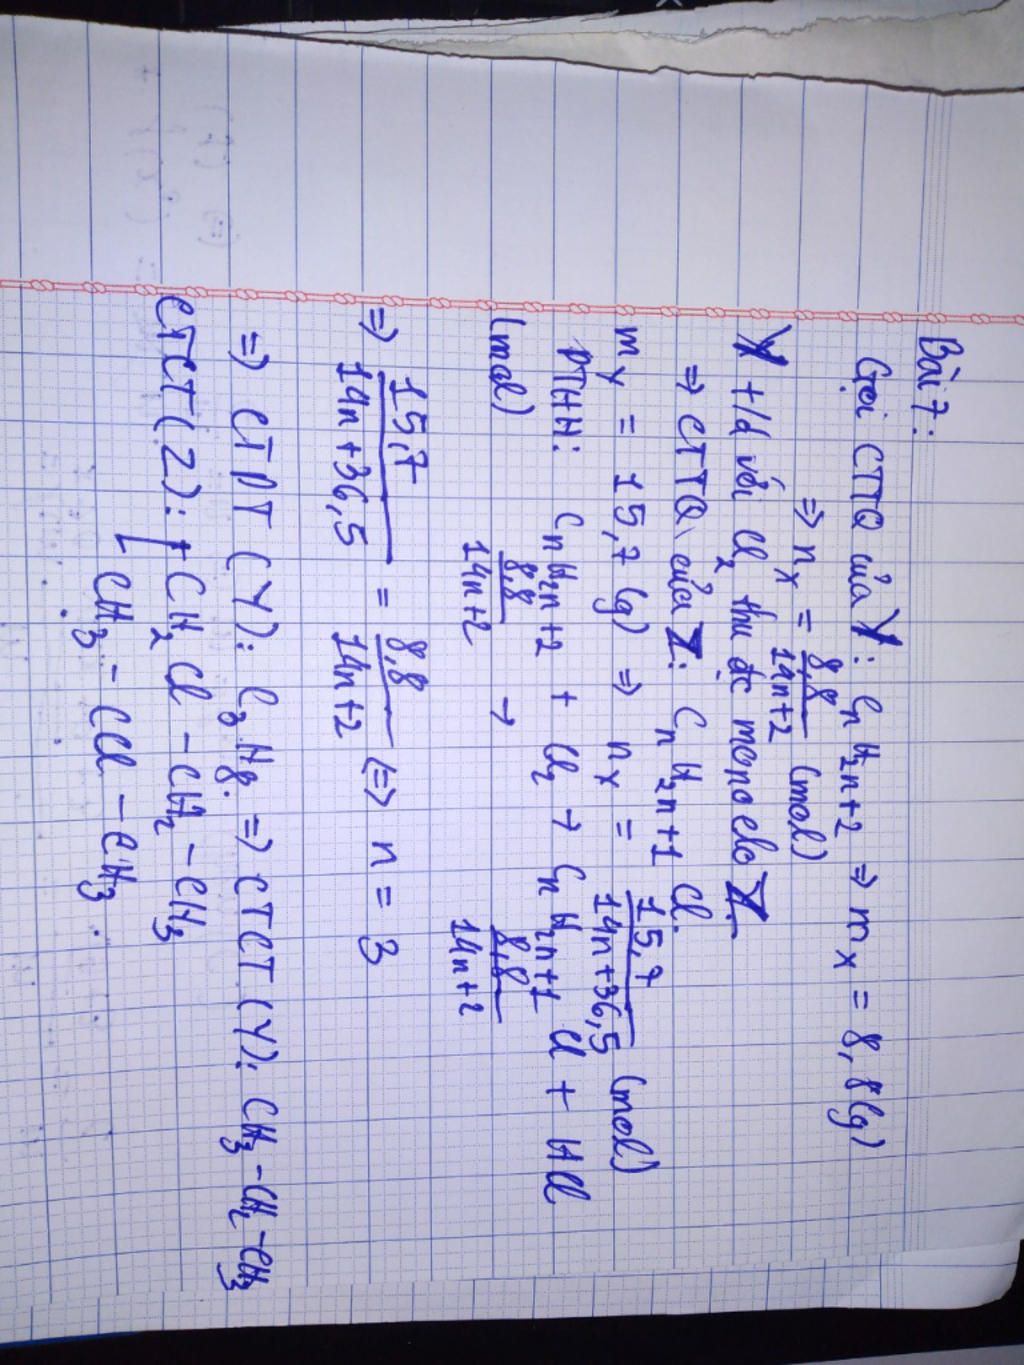 Bài 7:
Gọi CTTQ của Y: CnH2n+2 => mx = 8,8(g)
=> nx = 8,8/14n+2 (mol)
Y t/d với Cl2 thu đc monoclo Z.
=> CTTQ của Z: CnH2n+1Cl.
my = 15,7 (g) => nx = 15,7/14n+36,5 (mol)
PTHH: CnH2n+2 + Cl2 → CnH2n+1Cl + HCl
(mol) 8,8/14n+2 → 8,8/14n+2
=> 15,7/14n+36,5 = 8,8/14n+2 <=> n = 3
=> CTPT (Y): C3H8. => CTCT (Y): CH3-CH2-CH3
CTCT (Z): [ CH2Cl - CH2 - CH3
CH3 - CCl - CH3.